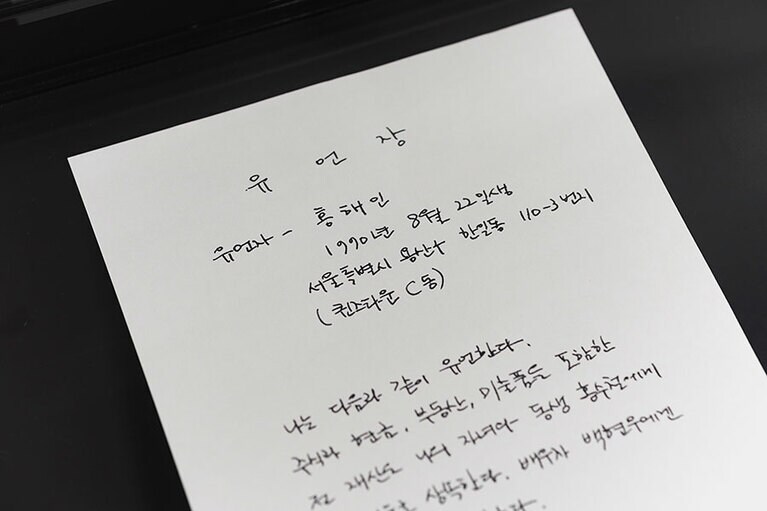 유 언 장
유언자 - 홍해인
1990년 8월 22일생
서울특별시 용산구 한일동 110-3번지
(퀸즈타운 C동)
나는 다음과 같이 유언한다.
주식과 현금, 부동산, 미술품을 포함한
전 재산은 나의 자녀와 동생 홍수철에게
상속한다. 배우자 백현우에겐